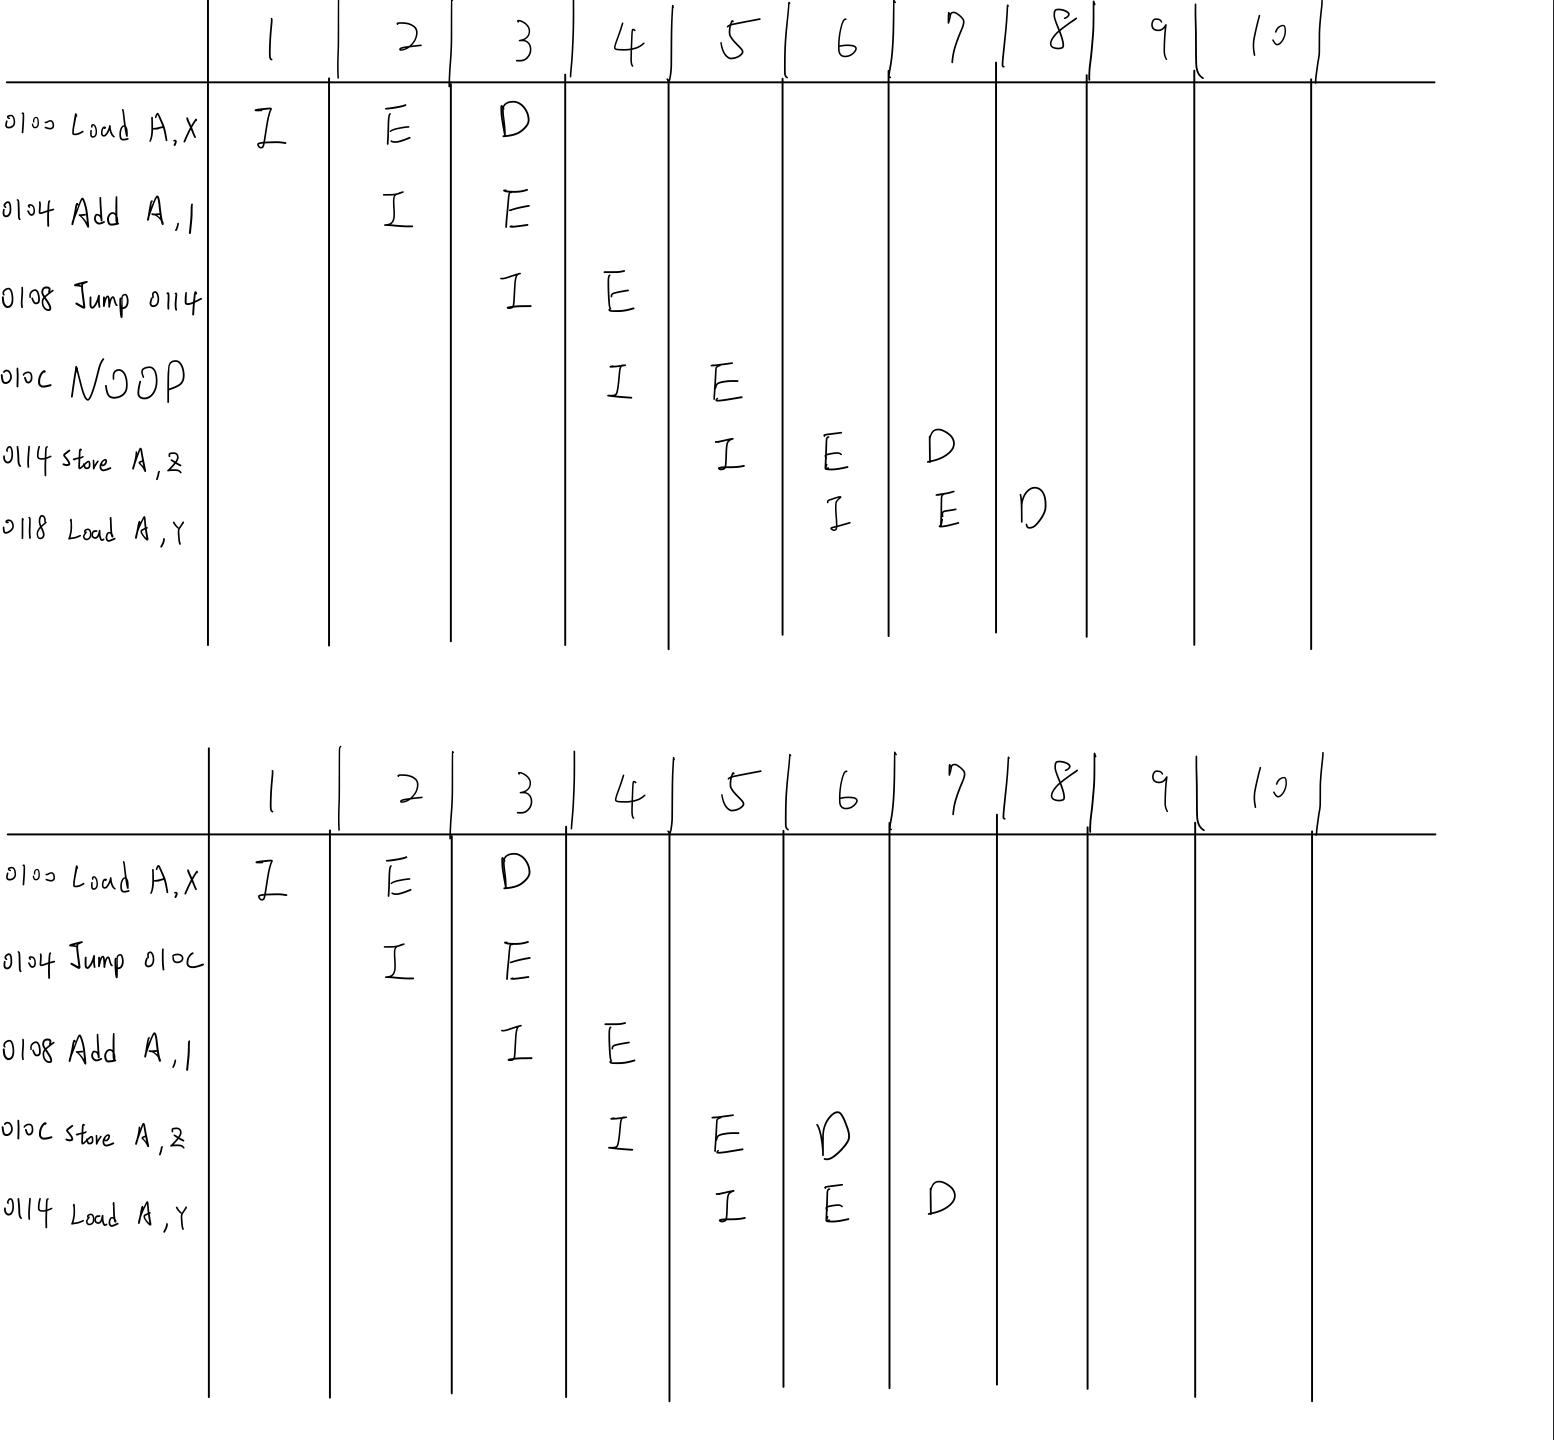 1 2 3 4 5 6 7 8 9 10
0100 Load A,X I E D
0104 Add A,1 I E
0108 Jump 0114 I E
010C NOOP I E
0114 Store A,Z I E D
0118 Load A,Y I E D
1 2 3 4 5 6 7 8 9 10
0100 Load A,X I E D
0104 Jump 010C I E
0108 Add A,1 I E
010C Store A,Z I E D
0114 Load A,Y I E D